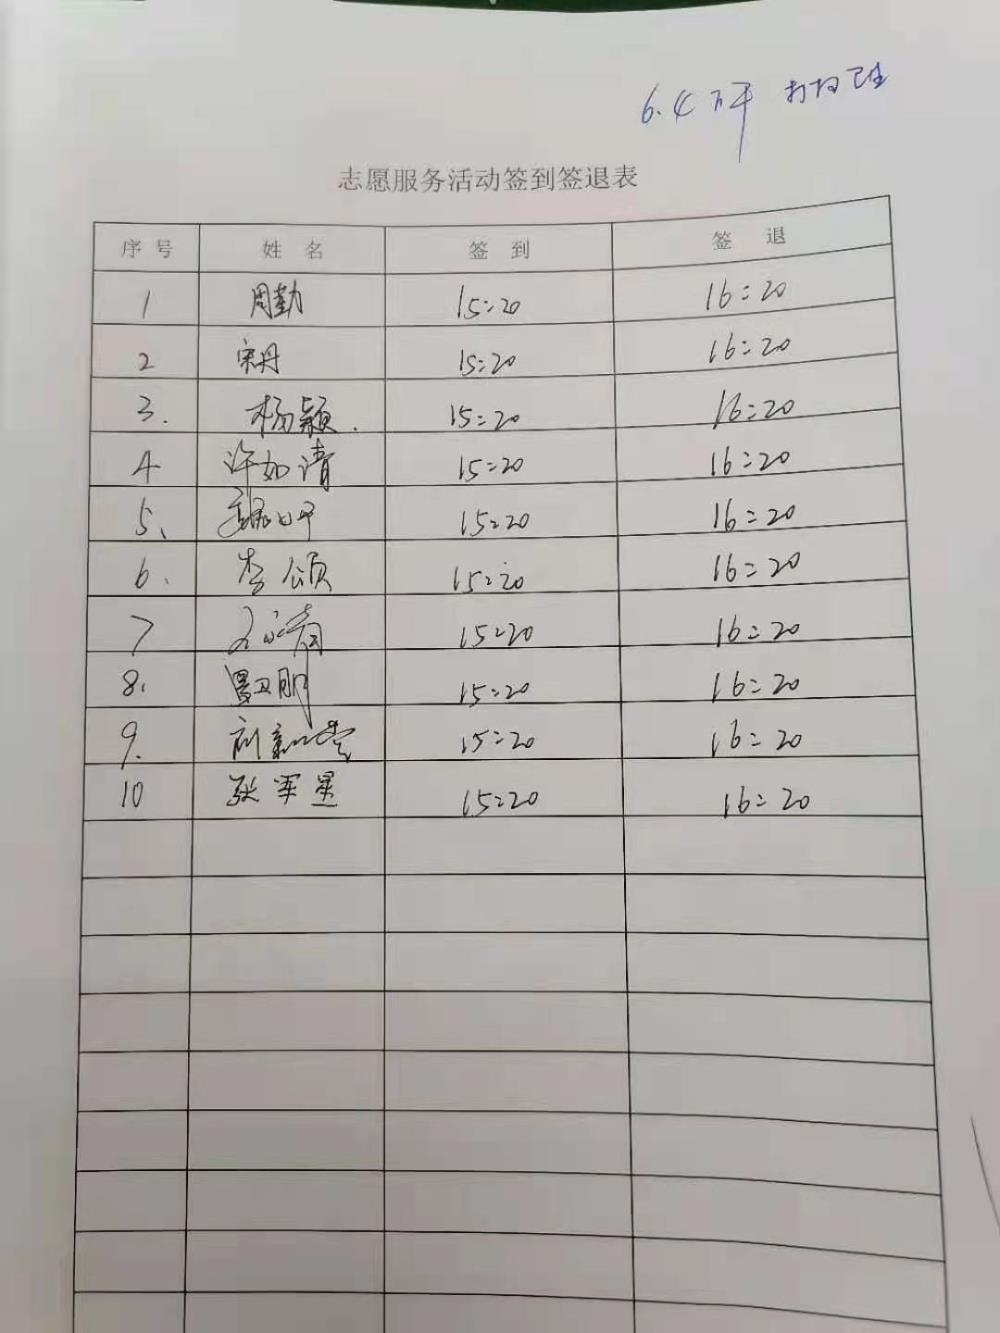 6.4 下午 打扫卫生
志愿服务活动签到签退表
序号 姓名 签到 签退
1 周勤 15:20 16:20
2 宋丹 15:20 16:20
3. 杨颖. 15:20 16:20
4 许如清 15:20 16:20
5、 15:20 16:20
6. 李颂 15:20 16:20
7 15:20 16:20
8. 15:20 16:20
9. 15:20 16:20
10 张军星 15:20 16:20